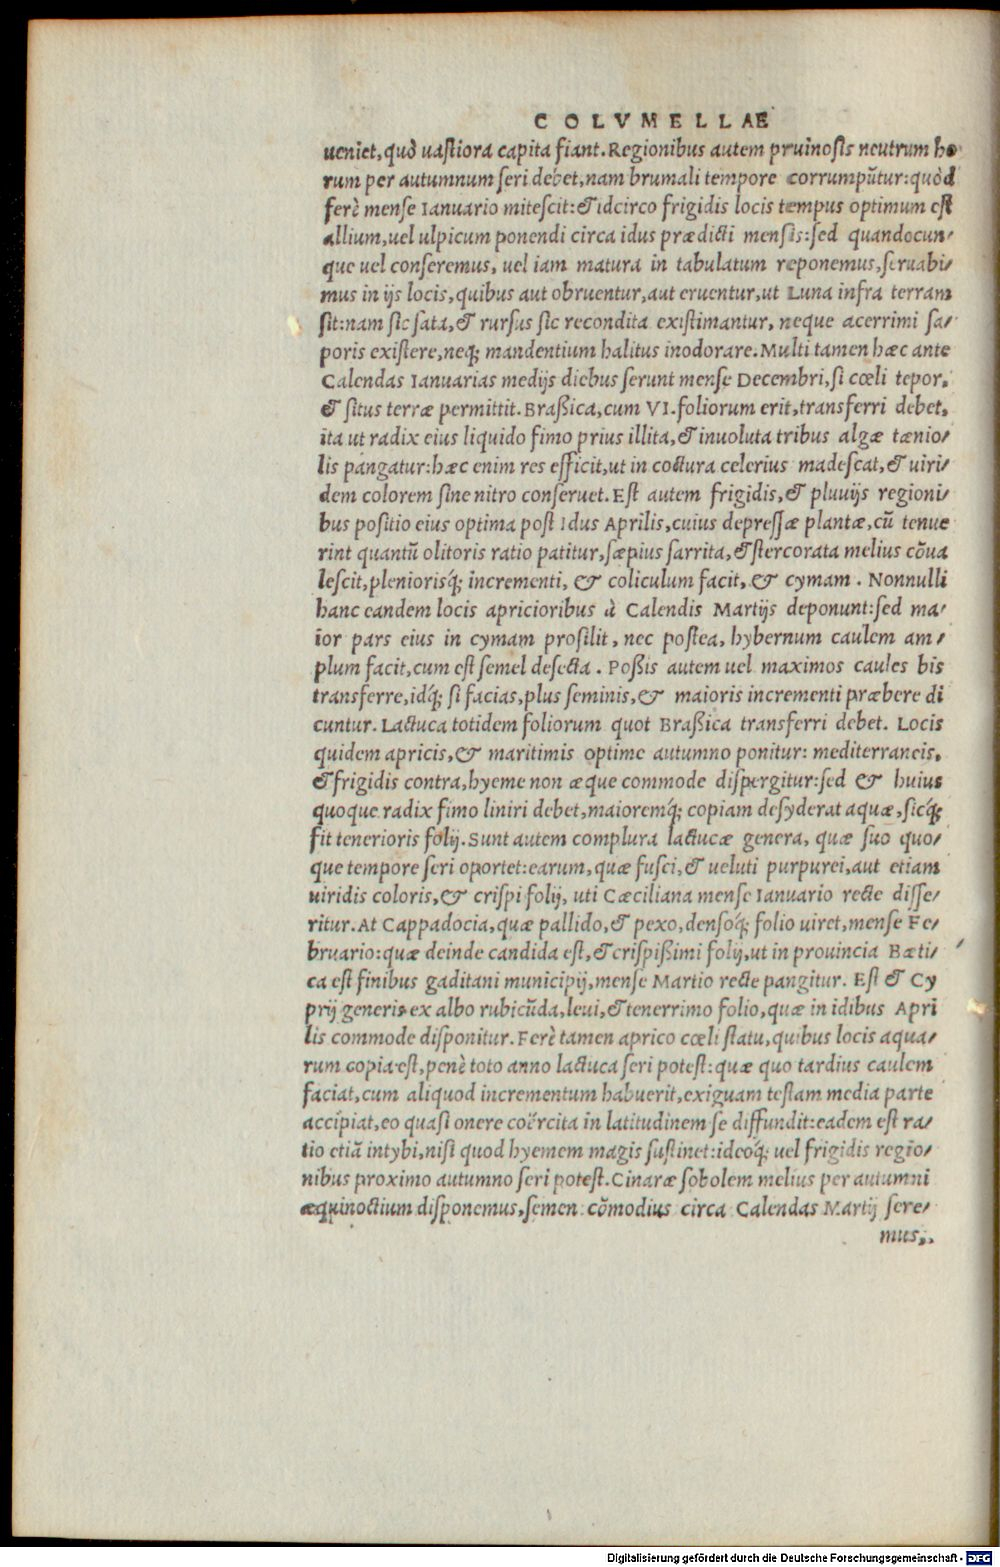 COLVMELLAE
ueniet, quò uastiora capita fiant. Regionibus autem pruinosis neutrum ho
rum per autumnum seri debet, nam brumali tempore corrumpũtur: quòd
ferè mense Ianuario mitescit: & idcirco frigidis locis tempus optimum est
allium, uel ulpicum ponendi circa idus prædicti mensis: sed quandocun/
que uel conseremus, uel iam matura in tabulatum reponemus, seruabi/
mus in ijs locis, quibus aut obruentur, aut eruentur, ut Luna infra terram
sit: nam sic sata, & rursus sic recondita existimantur, neque acerrimi sa/
poris existere, neq; mandentium halitus inodorare. Multi tamen hæc ante
Calendas Ianuarias medijs diebus serunt mense Decembri, si cœli tepor,
& situs terræ permittit. Braßica, cum VI. foliorum erit, transferri debet,
ita ut radix eius liquido fimo prius illita, & inuoluta tribus algæ tænio/
lis pangatur: hæc enim res efficit, ut in coctura celerius madescat, & uiri/
dem colorem sine nitro conseruet. Est autem frigidis, & pluuijs regioni/
bus positio eius optima post Idus Aprilis, cuius depressæ plantæ, cũ tenue
rint quantũ olitoris ratio patitur, sæpius sarrita, & stercorata melius cõua
lescit, pleniorisq́; incrementi, & coliculum facit, & cymam. Nonnulli
hanc eandem locis apricioribus à Calendis Martijs deponunt: sed ma/
ior pars eius in cymam prosilit, nec postea, hybernum caulem am/
plum facit, cum est semel desecta. Poßis autem uel maximos caules bis
transferre, idq́; si facias, plus seminis, & maioris incrementi præbere di
cuntur. Lactuca totidem foliorum quot Braßica transferri debet. Locis
quidem apricis, & maritimis optime autumno ponitur: mediterraneis,
& frigidis contra, hyeme non æque commode dispergitur: sed & huius
quoque radix fimo liniri debet, maioremq́; copiam desyderat aquæ, sicq́;
fit tenerioris folij. Sunt autem complura lactucæ genera, quæ suo quo/
que tempore seri oportet: earum, quæ fusci, & ueluti purpurei, aut etiam
uiridis coloris, & crispi folij, uti Cæciliana mense Ianuario recte disse/
ritur. At Cappadocia, quæ pallido, & pexo, densoq́; folio uiret, mense Fe/
bruario: quæ deinde candida est, & crispißimi folij, ut in prouincia Bæti/
ca est finibus gaditani municipij, mense Martio recte pangitur. Est & Cy
prij generis ex albo rubicũda, leui, & tenerrimo folio, quæ in idibus Apri
lis commode disponitur. Ferè tamen aprico cœli statu, quibus locis aqua/
rum copia est, penè toto anno lactuca seri potest: quæ quo tardius caulem
faciat, cum aliquod incrementum habuerit, exiguam testam media parte
accipiat, eo quasi onere coërcita in latitudinem se diffundit: eadem est ra/
tio etiã intybi, nisi quod hyemem magis sustinet: ideoq́; uel frigidis regio/
nibus proximo autumno seri potest. Cinaræ sobolem melius per autumni
æquinoctium disponemus, semen cõmodius circa Calendas Martij sere/
mus,
Digitalisierung gefördert durch die Deutsche Forschungsgemeinschaft - DFG